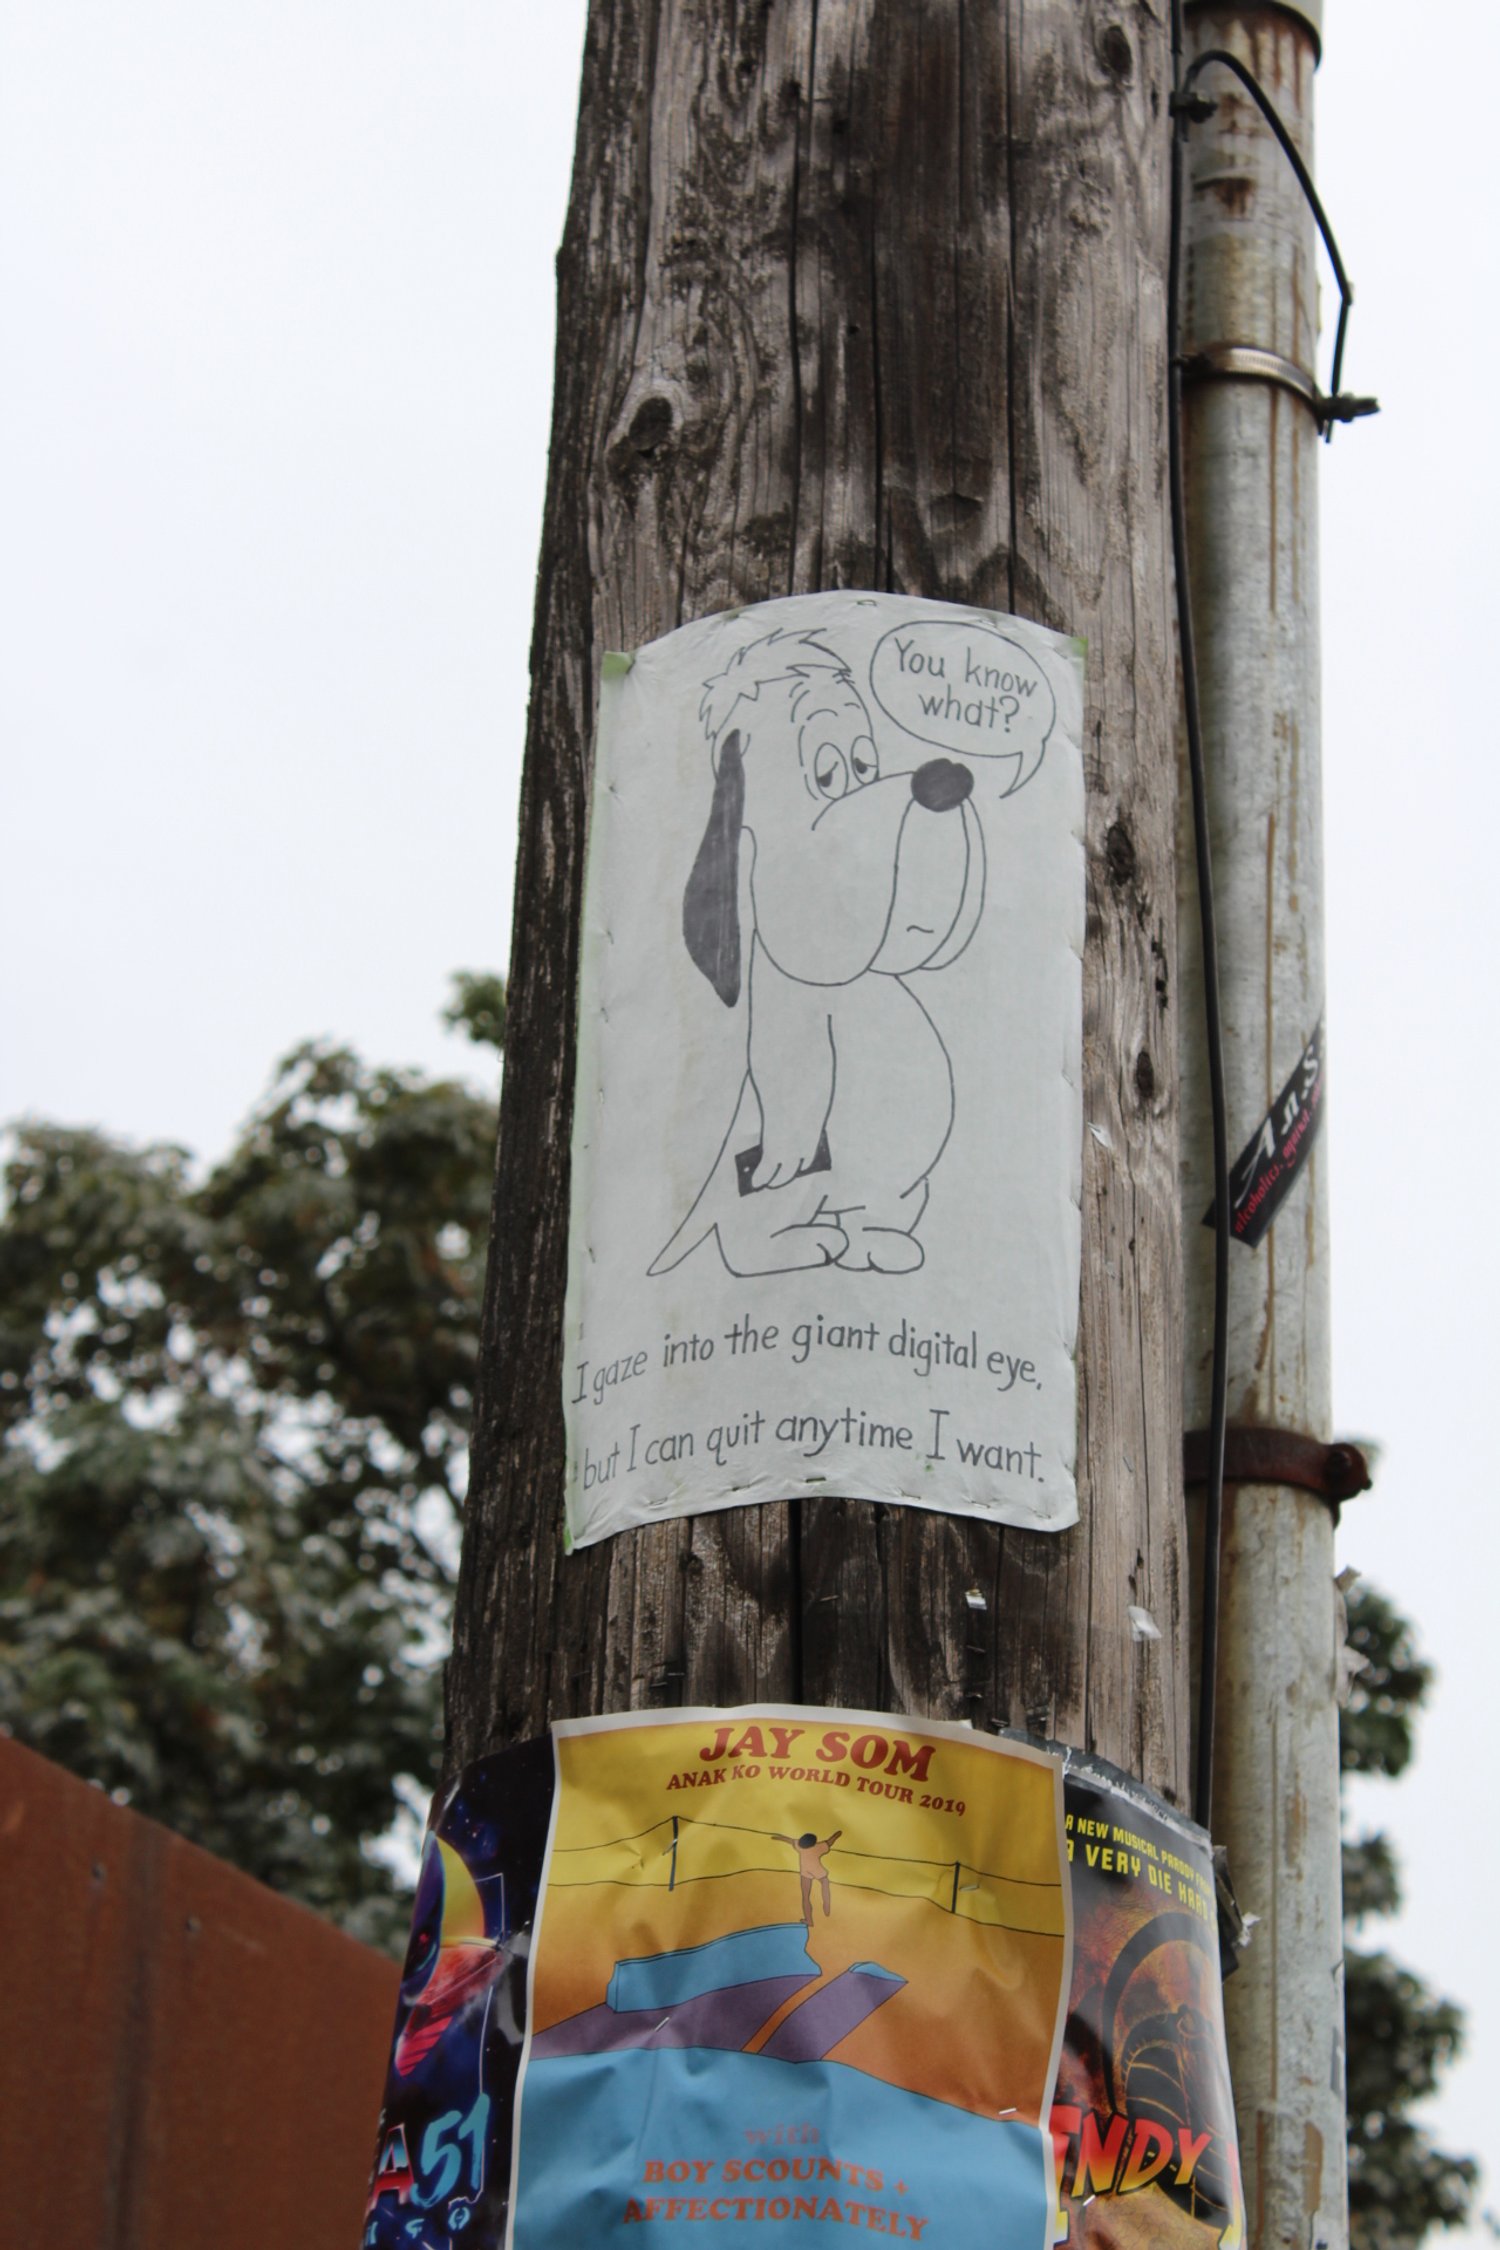 You know
what?
I gaze into the giant digital eye,
but I can quit anytime I want.
JAY SOM
ANAK KO WORLD TOUR 2019
with
BOY SCOUNTS +
AFFECTIONATELY
A NEW MUSICAL PARODY
A VERY DIE HARD
A51
alcoholics. against.